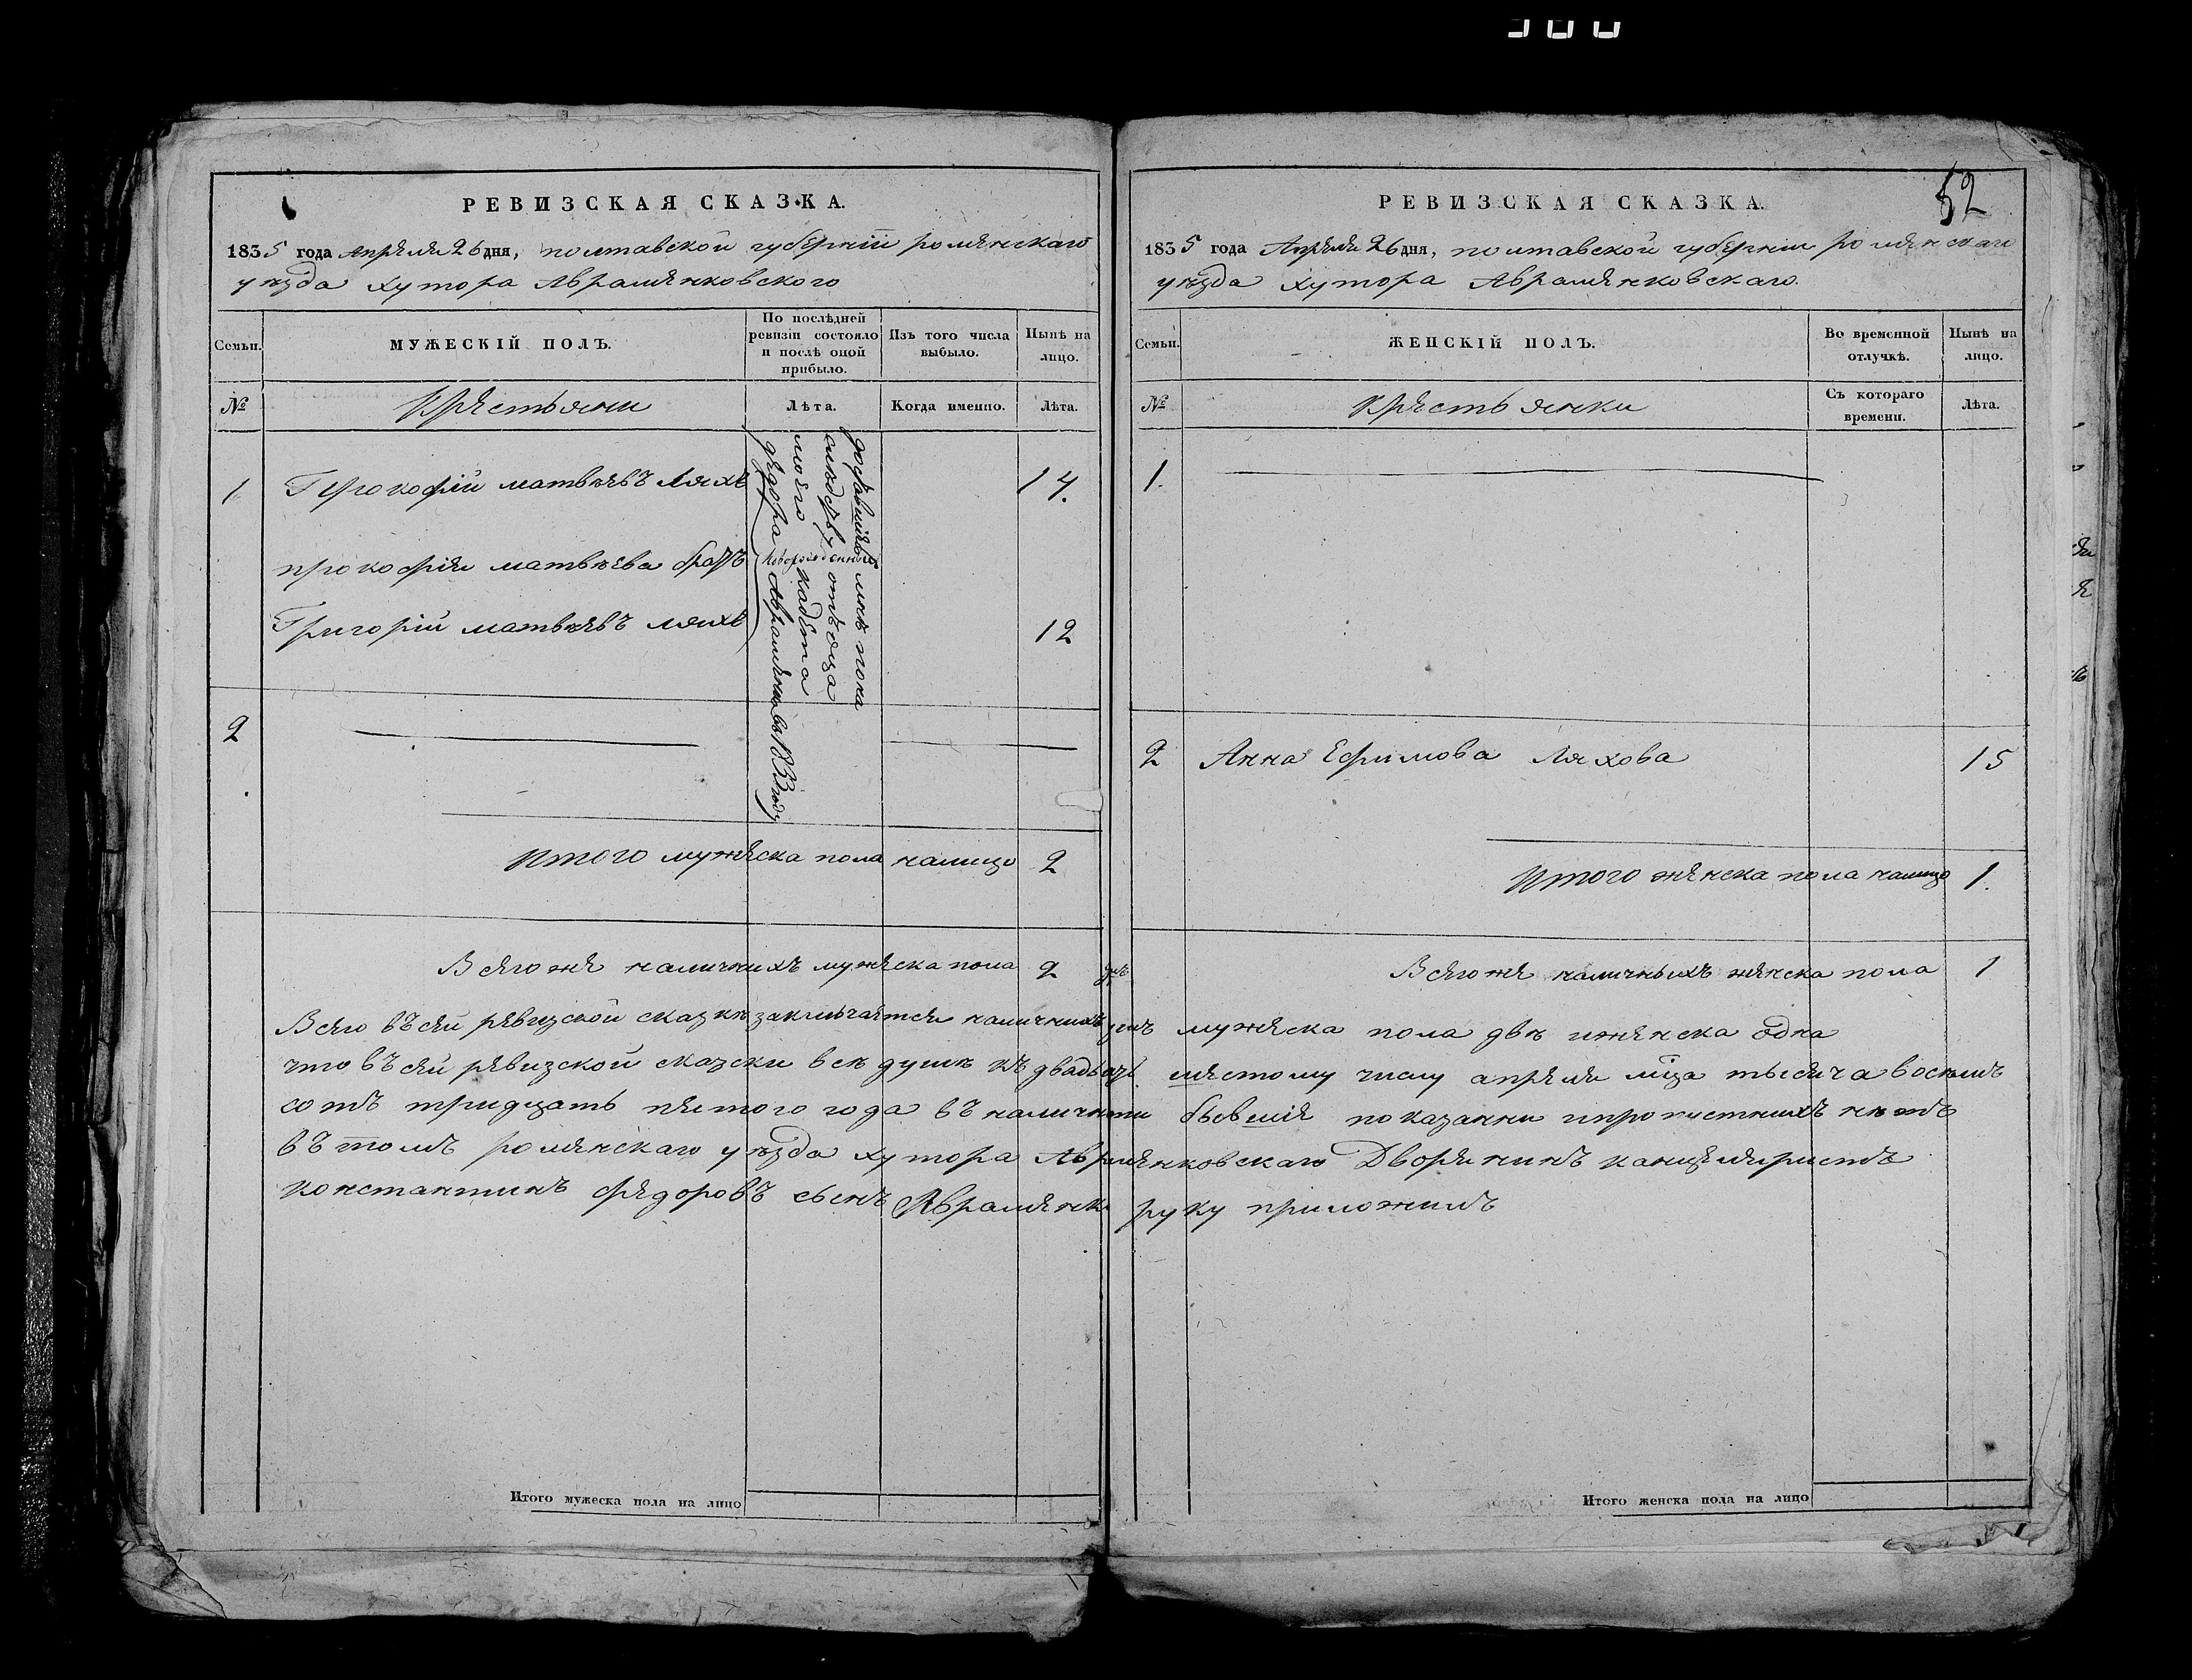 РЕВИЗСКАЯ СКАЗКА.
1835 года Апреля 26 дня, полтавской губернии роменскаго
уезда хутора Авраменковского
Семьи.
МУЖЕСКІЙ ПОЛЪ.
По послѣдней ревизіи состояло и послѣ оной прибыло.
Изъ того числа выбыло.
Нынѣ на лицо.
№
Крестьяни
Лѣта.
Когда именно.
Лѣта.
1
Прокофій матвеевъ Ляхъ
14.
прокофія матвеева братъ
новорожденной
Григорій матвеевъ ляхъ
12
доставшіяся мне пока
смерти отъ отца
моего кадета
федора Авраменка въ 1833 году
2
итого мужеска пола налицо 2
Всего же наличнихъ мужеска пола 2
РЕВИЗСКАЯ СКАЗКА.
52
1835 года Апреля 26 дня, полтавской губернии роменскаго
уезда хутора Авраменковскаго.
Семьи.
ЖЕНСКІЙ ПОЛЪ.
Во временной отлучкѣ.
Нынѣ на лицо.
№
крестьянки
Съ котораго времени.
Лѣта.
1.
2 Анна Ефимова Ляхова 15
итого женска пола налицо 1.
Всего же наличныхъ женска пола 1
Всего въ сей ревизской сказке заключается наличнихъ душъ мужеска пола две и женска одна
что въ сей ревизской сказски все души къ двадцать шестому числу апреля мца тысяча восемъ
сотъ тридцать пятого года въ наличности бывшія показанни и пропустнихъ нетъ
въ томъ роменскаго уезда хутора Авраменковскаго Дворянинъ канцеляристъ
константинъ федоровъ сынъ Авраменко руку приложилъ
Итого мужеска пола на лицо
Итого женска пола на лицо